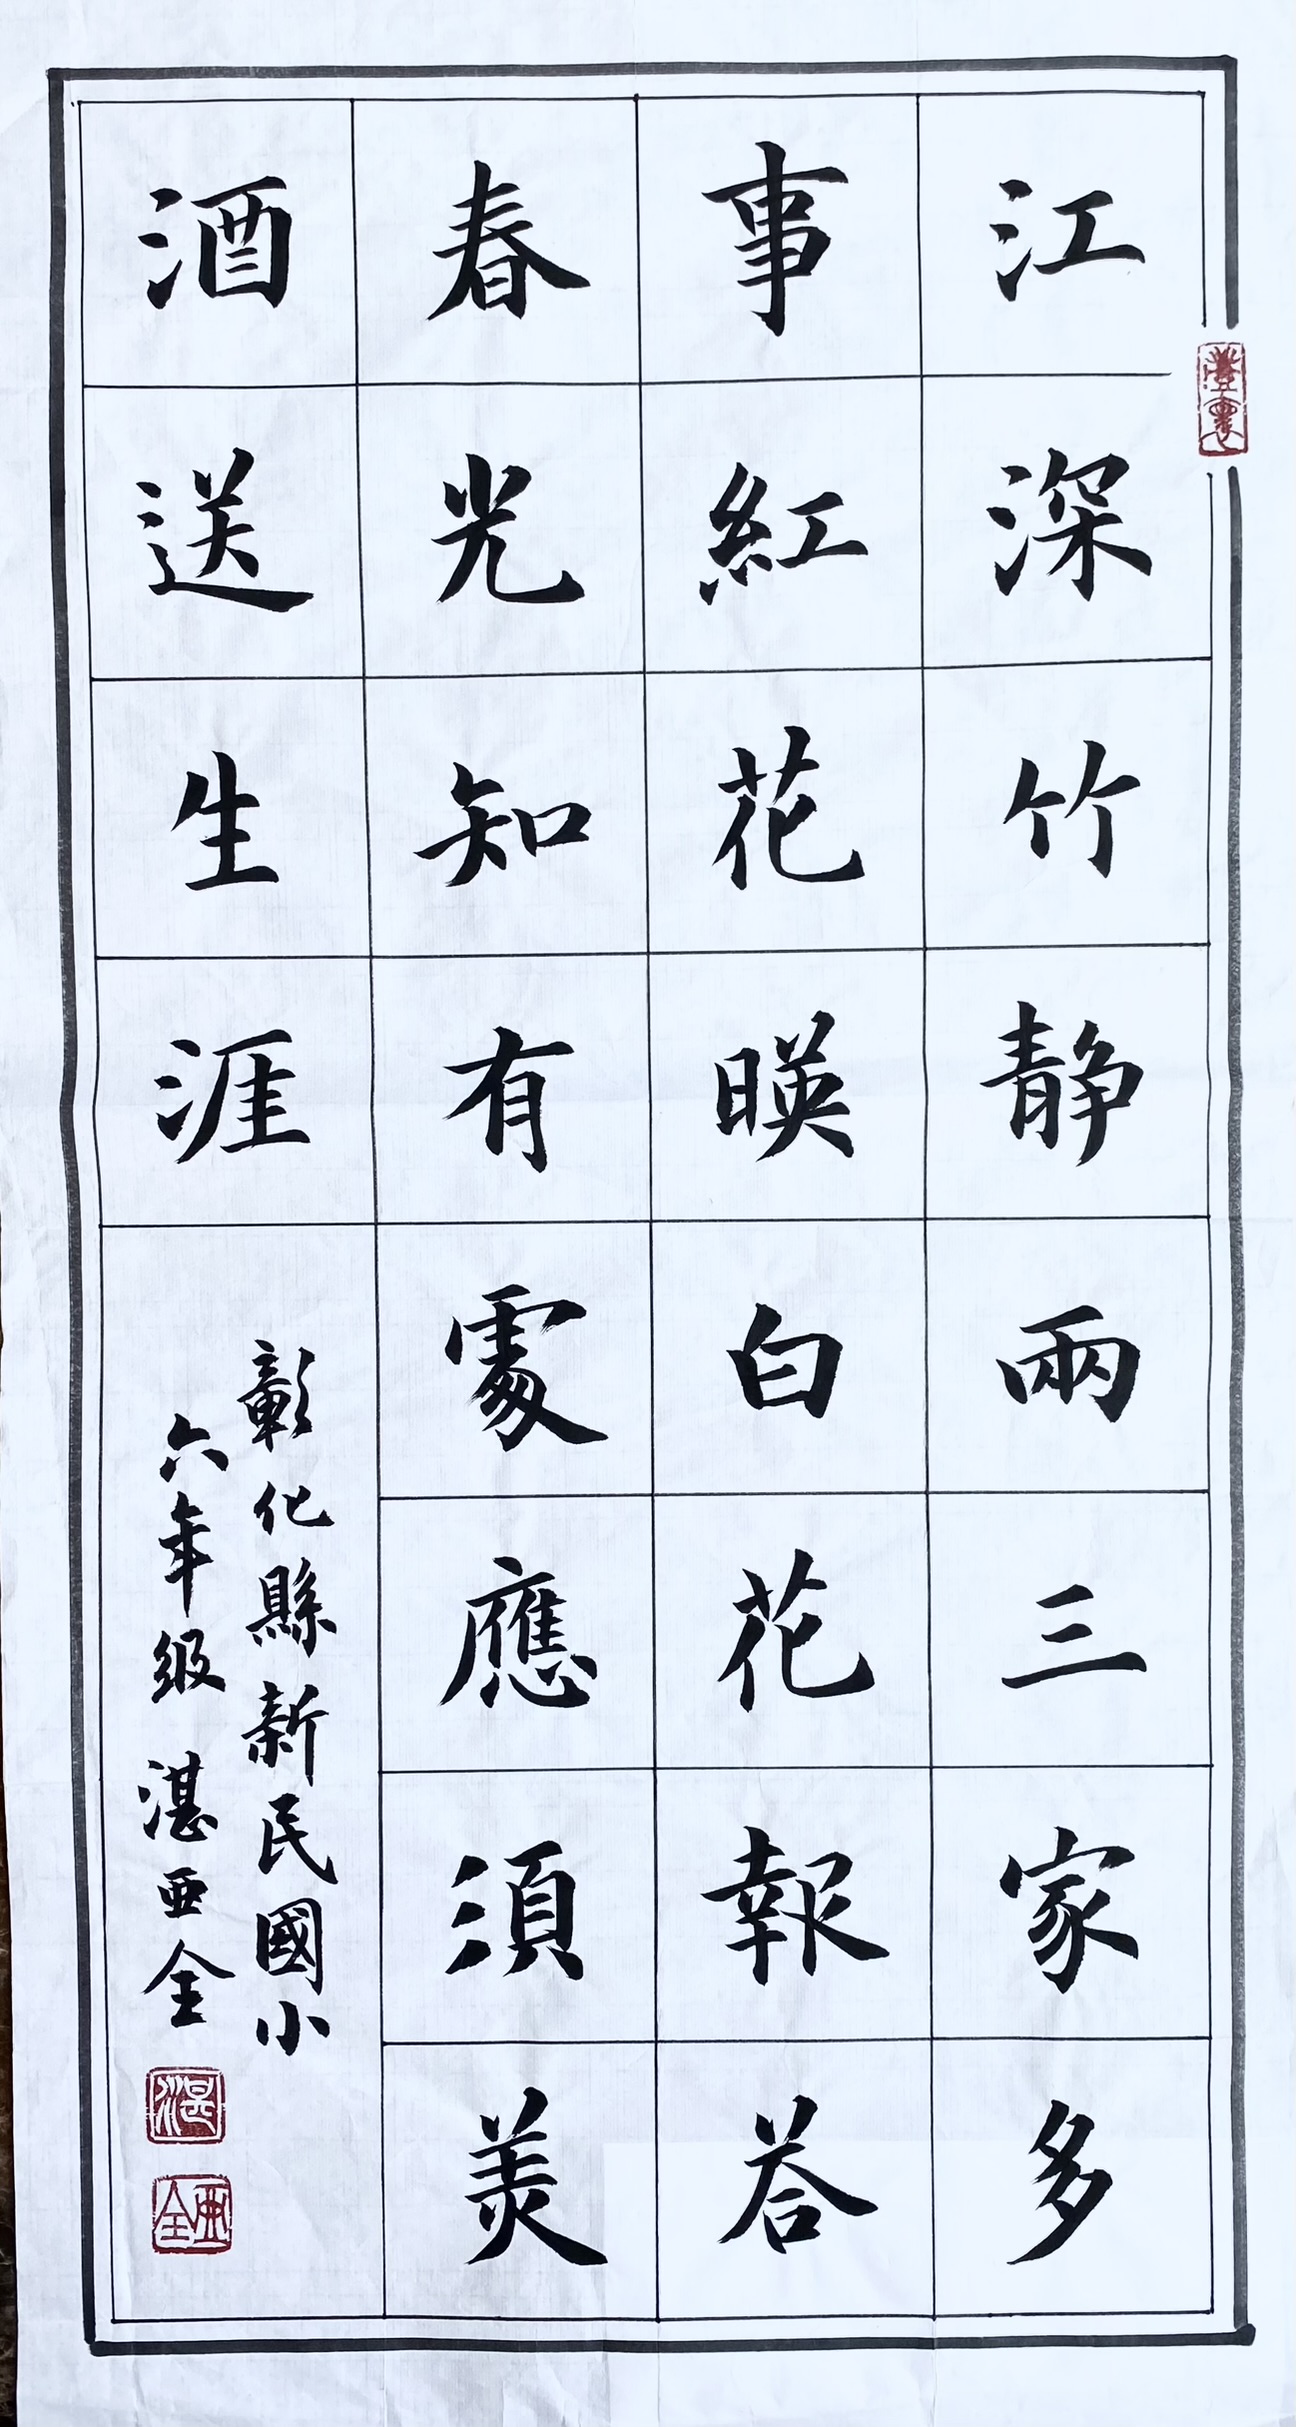 江深竹静兩三家多
事紅花暎白花報荅
春光知有處應須美
酒送生涯
彰化縣新民國小
六年级 湛亜全
湛
亜全